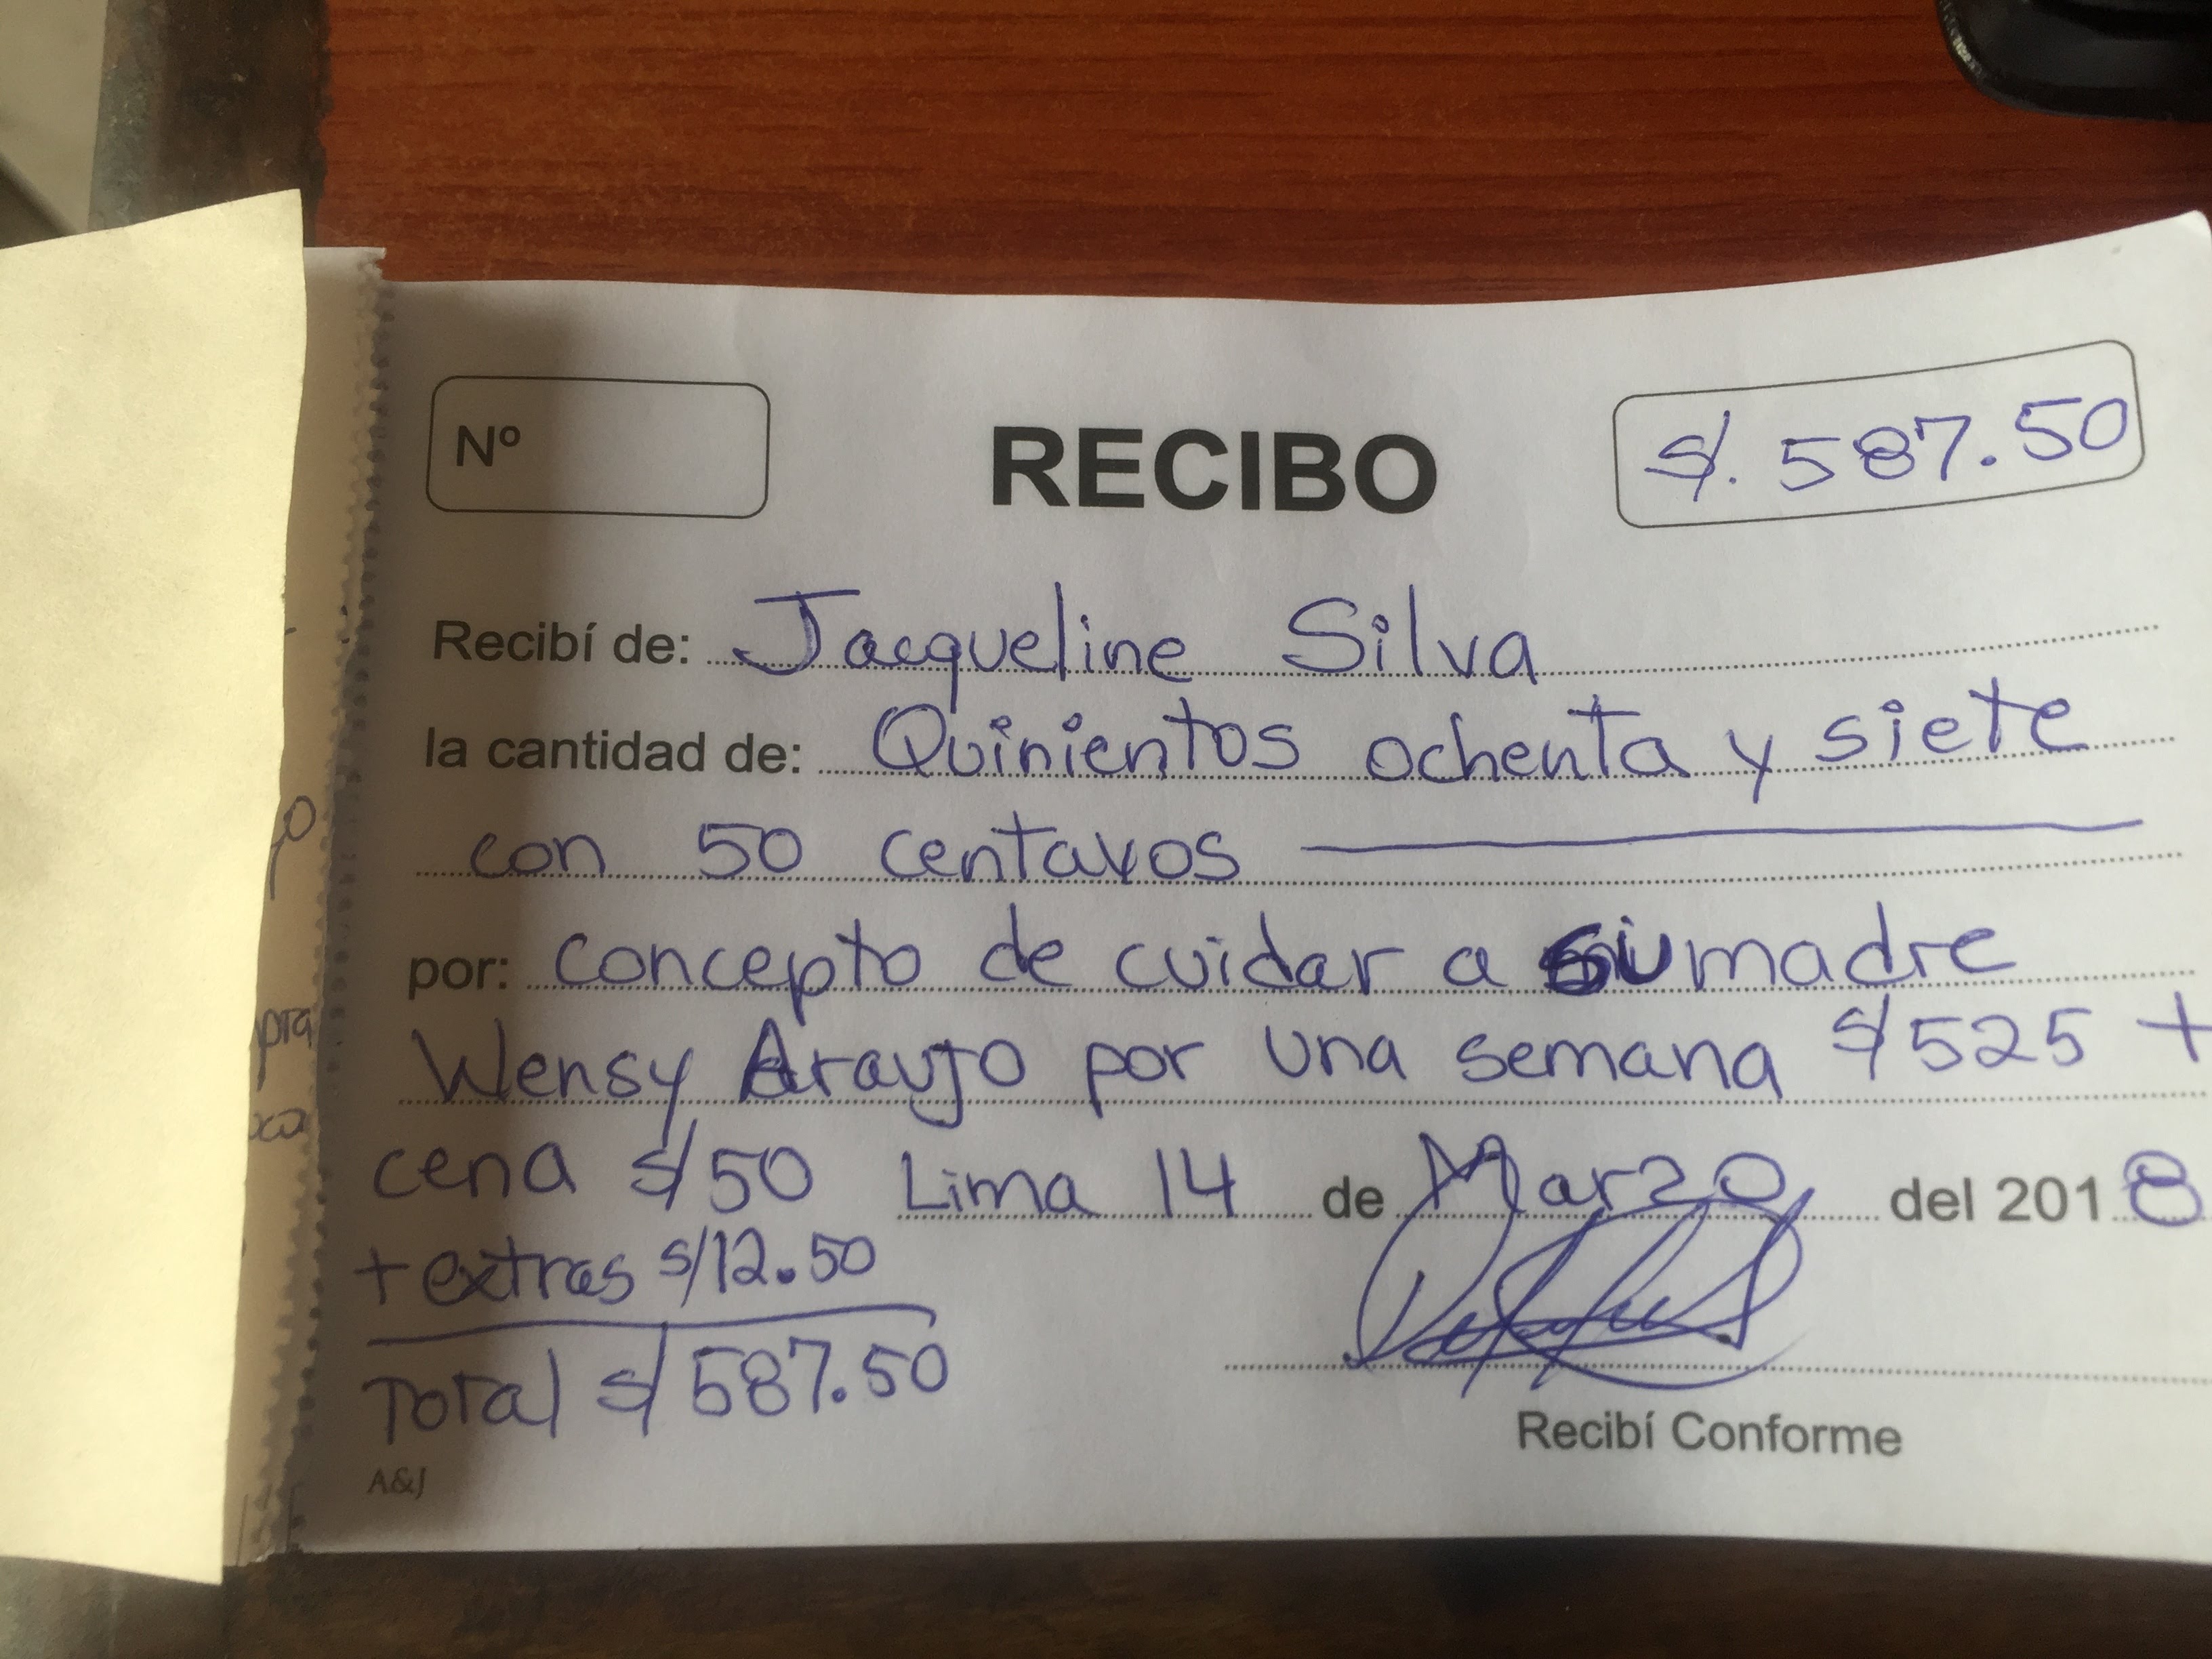 Nº RECIBO S/. 587.50
Recibí de: Jacqueline Silva
la cantidad de: Quinientos ochenta y siete
con 50 centavos
por: concepto de cuidar a su madre
Wensy Araujo por una semana S/ 525 +
cena S/ 50 Lima 14 de Marzo del 2018
+ extras S/12.50
Total S/ 587.50
Recibí Conforme
A&J